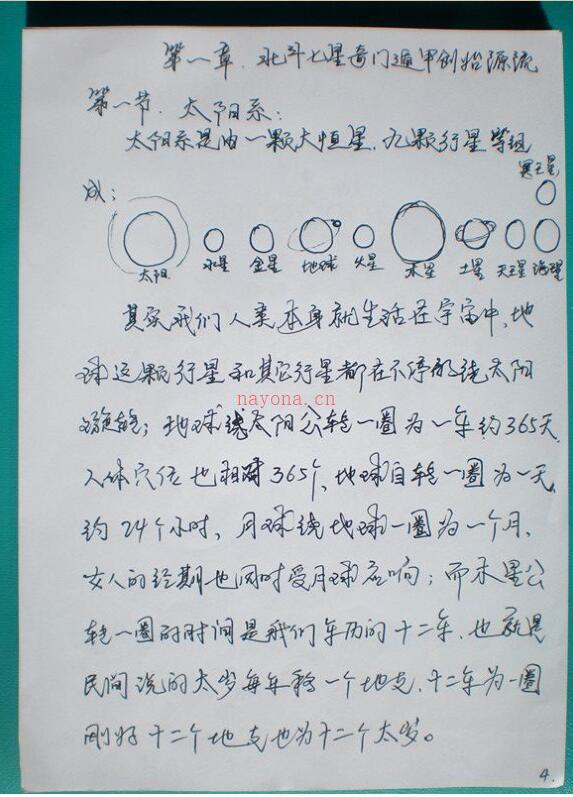 第一章.北斗七星奇门遁甲创始源流
第一节.太阳系:
太阳系是由一颗大恒星.九颗行星等组
冥王星
成:
太阳 水星 金星 地球 火星 木星 土星 天王星 海王星
其实我们人类本身就生活在宇宙中,地
球这颗行星和其它行星都在不停的绕太阳
nayona.cn
旋转;地球绕太阳公转一圈为一年约365天
人体穴位也相对365个,地球自转一圈为一天
约24个小时,月球绕地球一圈为一个月,
女人的经期也同时受月球影响;而木星公
转一圈的时间是我们年历的十二年.也就是
民间说的太岁每年移一个地支.十二年为一圈
刚好十二个地支也为十二个太岁。
4.